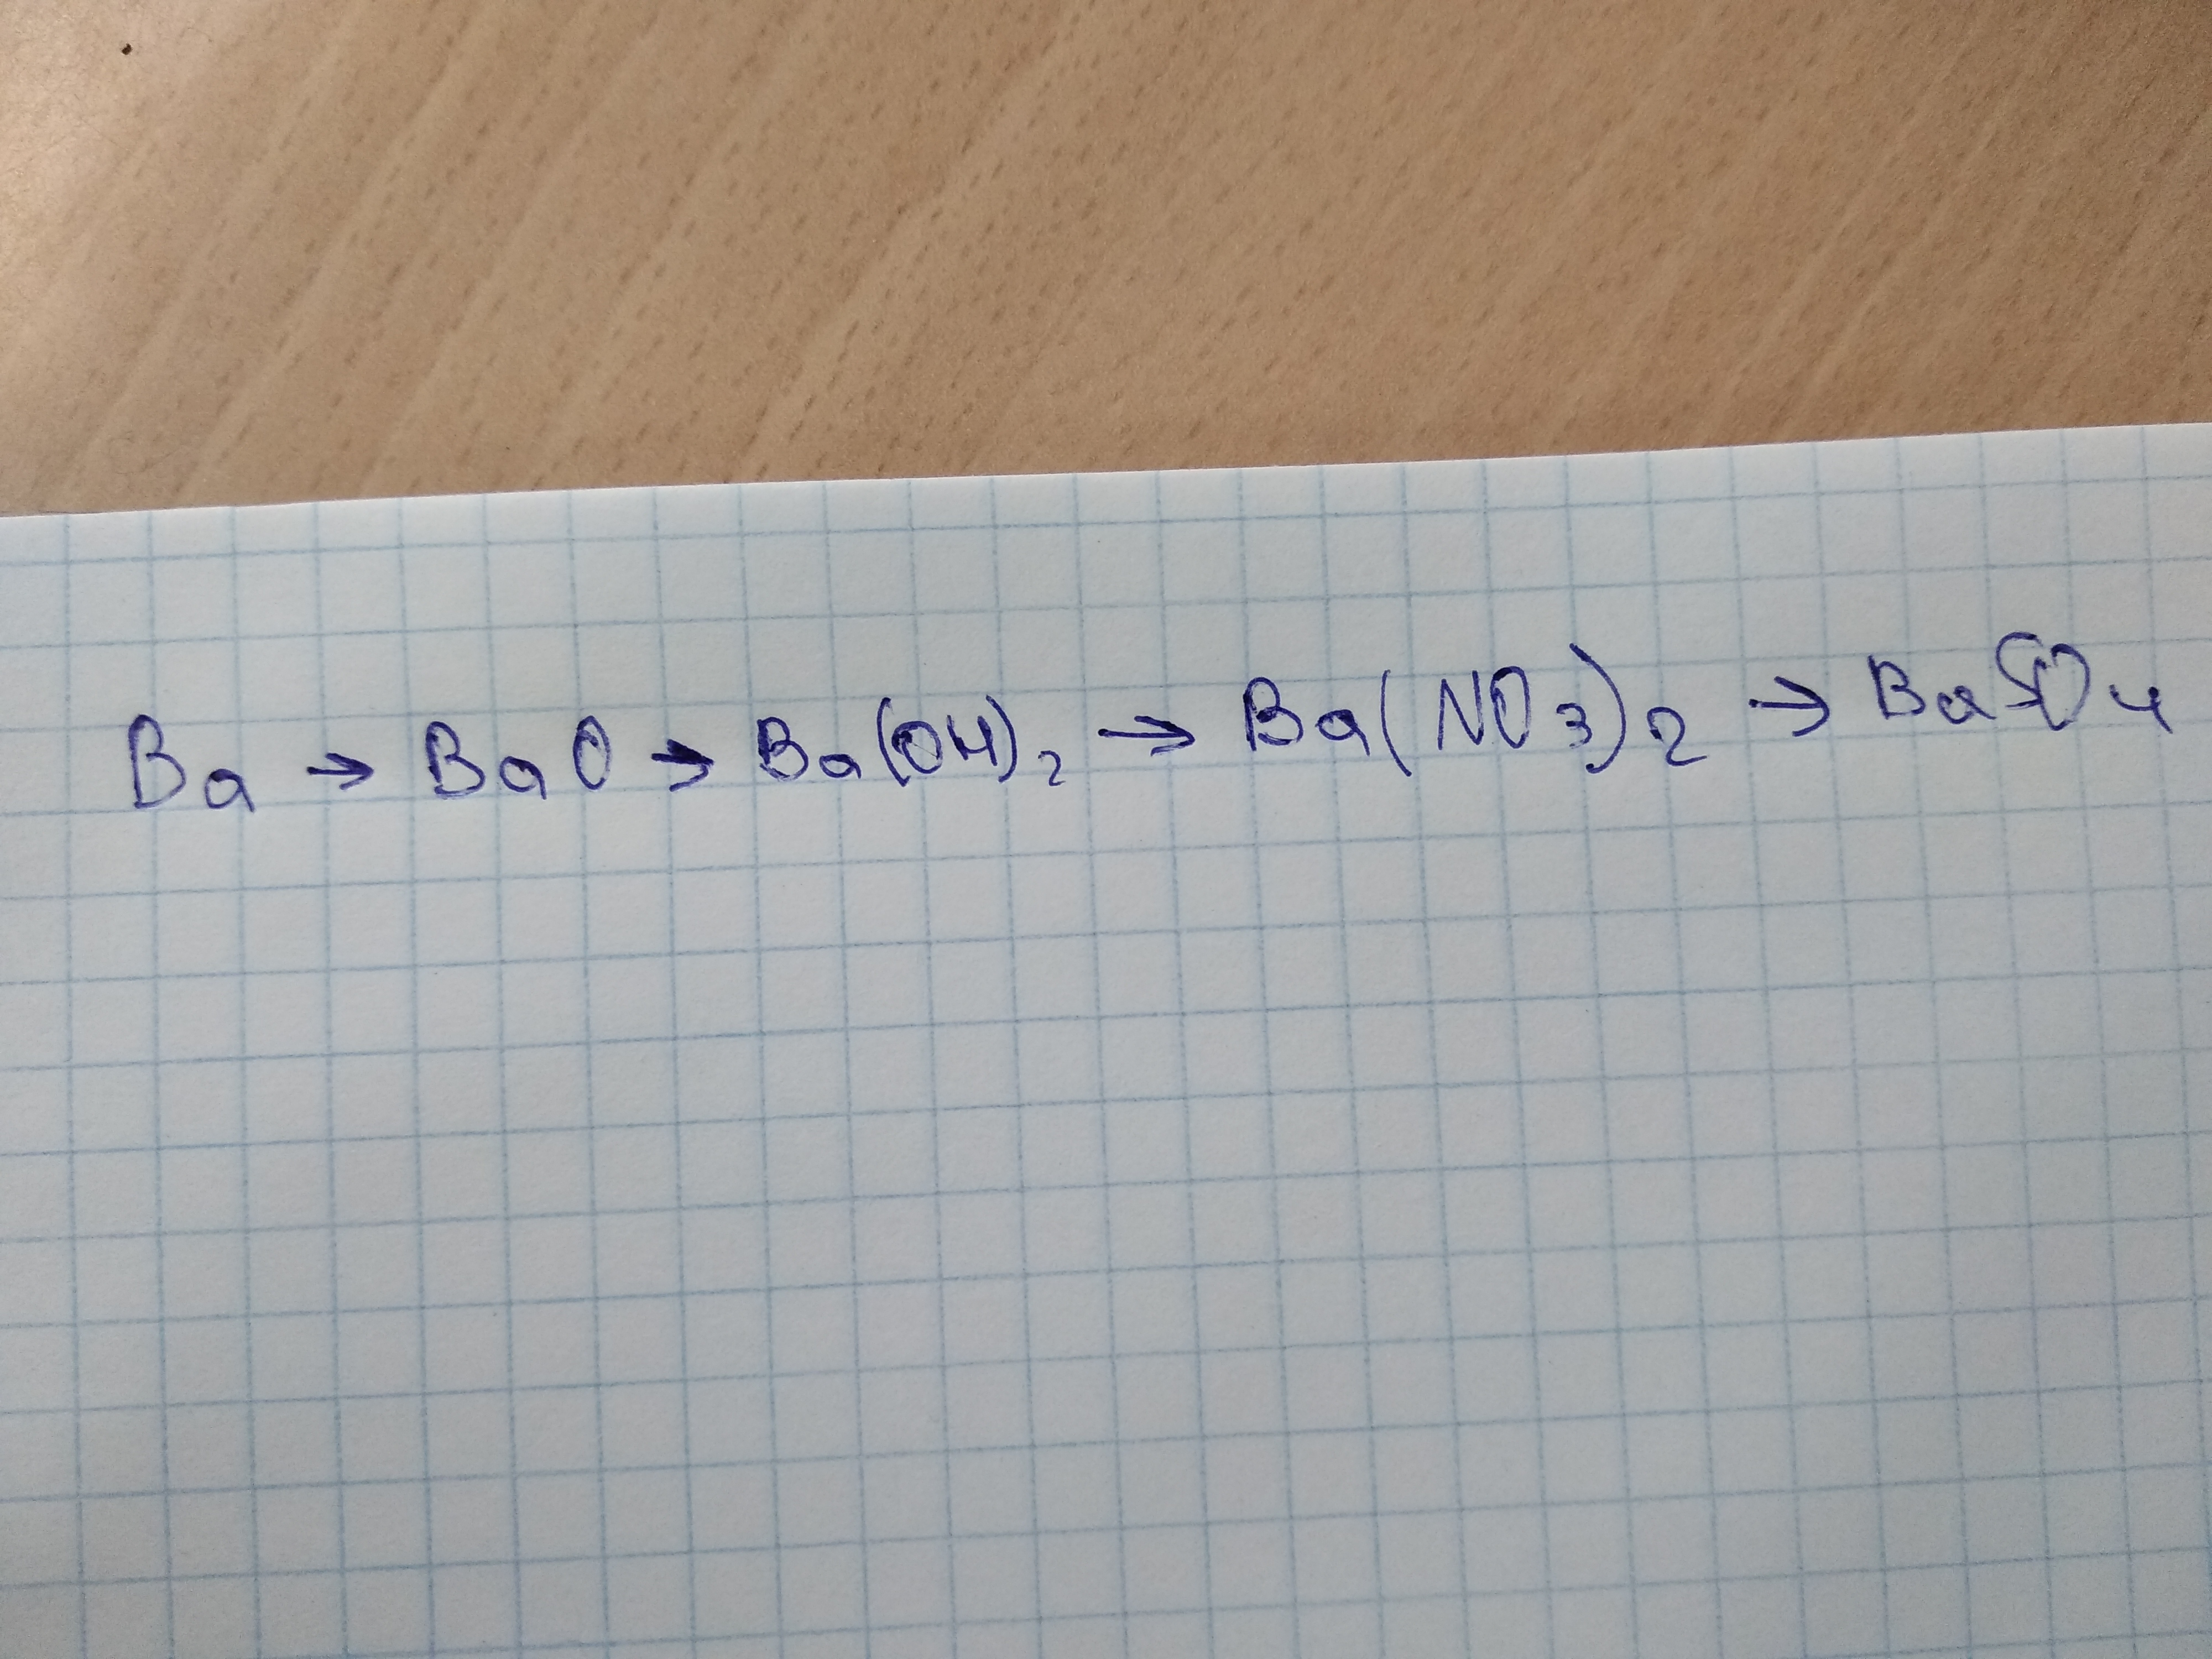 Ba → BaO → Ba(OH)₂ → Ba(NO₃)₂ → BaSO₄